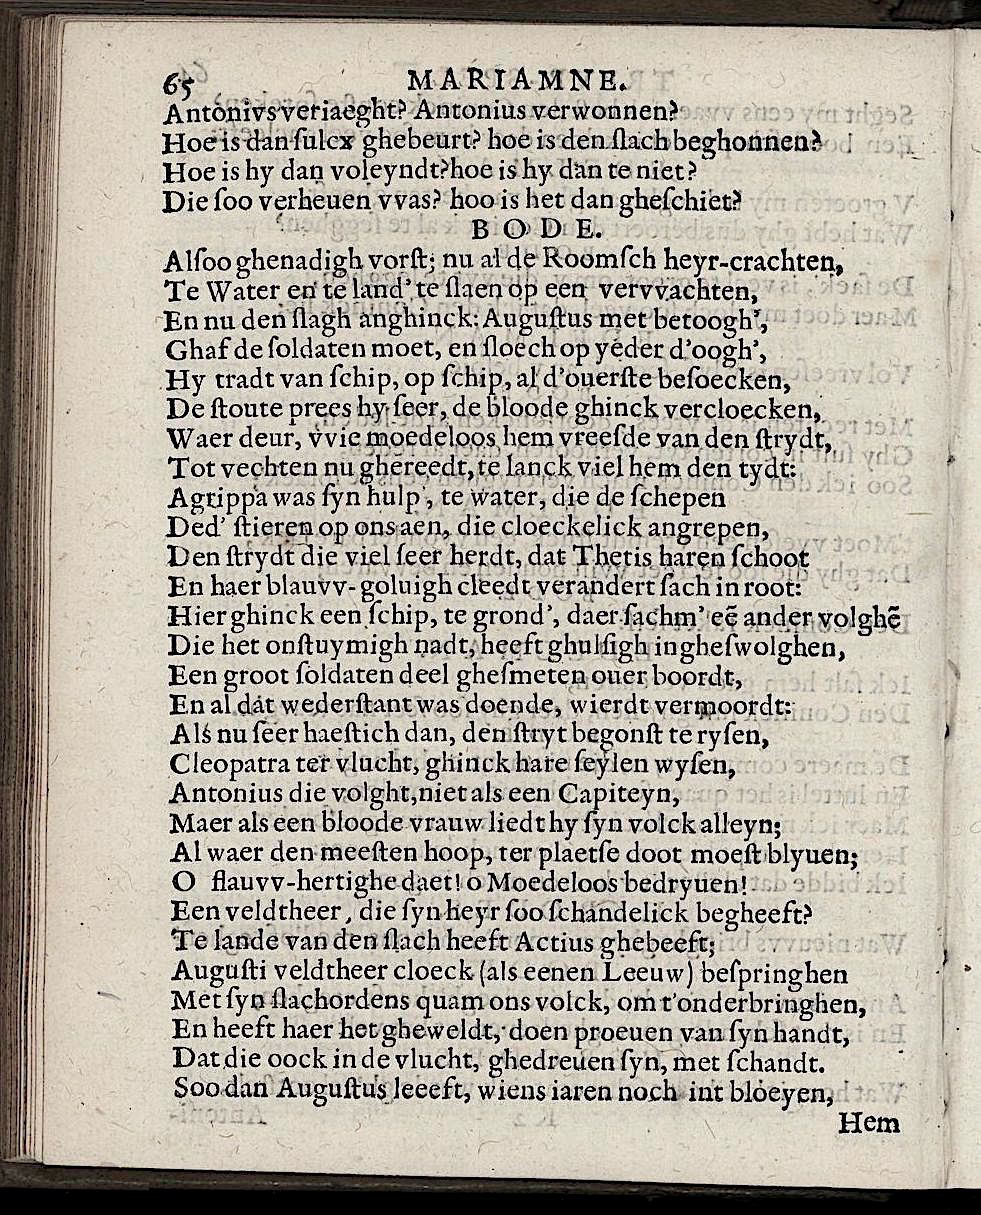 65 MARIAMNE.
Antonivs veriaeght? Antonius verwonnen?
Hoe is dan ſulcx ghebeurt? hoe is den ſlach beghonnen?
Hoe is hy dan voleyndt? hoe is hy dan te niet?
Die ſoo verheuen vvas? hoo is het dan gheſchiet?
BODE.
Alſoo ghenadigh vorſt; nu al de Roomſch heyr-crachten,
Te Water en te land' te ſlaen op een vervvachten,
En nu den ſlagh anghinck: Auguſtus met betoogh',
Ghaf de ſoldaten moet, en ſloech op yeder d'oogh',
Hy tradt van ſchip, op ſchip, al d'ouerſte beſoecken,
De ſtoute prees hy ſeer, de bloode ghinck vercloecken,
Waer deur, vvie moedeloos hem vreeſde van den ſtrydt,
Tot vechten nu ghereedt, te lanck viel hem den tydt:
Agrippa was ſyn hulp', te water, die de ſchepen
Ded' ſtieren op ons aen, die cloeckelick angrepen,
Den ſtrydt die viel ſeer herdt, dat Thetis haren ſchoot
En haer blauvv-goluigh cleedt verandert ſach in root:
Hier ghinck een ſchip, te grond', daer ſachm' eẽ ander volghẽ
Die het onſtuymigh nadt, heeft ghulſigh in gheſwolghen,
Een groot ſoldaten deel gheſmeten ouer boordt,
En al dat wederſtant was doende, wierdt vermoordt:
Als nu ſeer haeſtich dan, den ſtryt begonſt te ryſen,
Cleopatra ter vlucht, ghinck hare ſeylen wyſen,
Antonius die volght, niet als een Capiteyn,
Maer als een bloode vrauw liedt hy ſyn volck alleyn;
Al waer den meeſten hoop, ter plaetſe doot moeſt blyuen;
O flauvv-hertighe daet! o Moedeloos bedryuen!
Een veldtheer, die ſyn heyr ſoo ſchandelick begheeft?
Te lande van den ſlach heeft Actius ghebeeft;
Auguſti veldtheer cloeck (als eenen Leeuw) beſpringhen
Met ſyn ſlachordens quam ons volck, om t'onderbringhen,
En heeft haer het gheweldt, doen proeuen van ſyn handt,
Dat die oock in de vlucht, ghedreuen ſyn, met ſchandt.
Soo dan Auguſtus leeeft, wiens iaren noch int bloeyen,
Hem